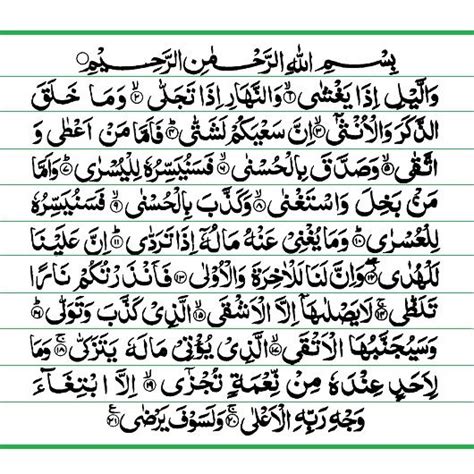 بِسْمِ اللهِ الرَّحْمٰنِ الرَّحِيْمِ ○
وَالَّيْلِ اِذَا يَغْشٰى ۙ﴿۱﴾ وَالنَّهَارِ اِذَا تَجَلّٰى ۙ﴿۲﴾ وَمَا خَلَقَ
الذَّكَرَ وَالْاُنْثٰٓى ۙ﴿۳﴾ اِنَّ سَعْيَكُمْ لَشَتّٰى ؕ﴿۴﴾ فَاَمَّا مَنْ اَعْطٰى وَ
اتَّقٰى ۙ﴿۵﴾ وَصَدَّقَ بِالْحُسْنٰى ۙ﴿۶﴾ فَسَنُيَسِّرُهٗ لِلْيُسْرٰى ؕ﴿۷﴾ وَاَمَّا
مَنْۢ بَخِلَ وَاسْتَغْنٰى ۙ﴿۸﴾ وَكَذَّبَ بِالْحُسْنٰى ۙ﴿۹﴾ فَسَنُيَسِّرُهٗ
لِلْعُسْرٰى ؕ﴿۱۰﴾ وَمَا يُغْنِيْ عَنْهُ مَالُهٗۤ اِذَا تَرَدّٰى ؕ﴿۱۱﴾ اِنَّ عَلَيْنَا
لَلْهُدٰى ۖ﴿۱۲﴾ وَاِنَّ لَنَا لَلْاٰخِرَةَ وَالْاُوْلٰى ﴿۱۳﴾ فَاَنْذَرْتُكُمْ نَارًا
تَلَظّٰى ۚ﴿۱۴﴾ لَا يَصْلٰىهَاۤ اِلَّا الْاَشْقَى ۙ﴿۱۵﴾ الَّذِيْ كَذَّبَ وَتَوَلّٰى ؕ﴿۱۶﴾
وَسَيُجَنَّبُهَا الْاَتْقَى ۙ﴿۱۷﴾ الَّذِيْ يُؤْتِيْ مَالَهٗ يَتَزَكّٰى ۚ﴿۱۸﴾ وَمَا
لِاَحَدٍ عِنْدَهٗ مِنْ نِّعْمَةٍ تُجْزٰٓى ۙ﴿۱۹﴾ اِلَّا ابْتِغَآءَ
وَجْهِ رَبِّهِ الْاَعْلٰى ۚ﴿۲۰﴾ وَلَسَوْفَ يَرْضٰى ﴿۲۱﴾